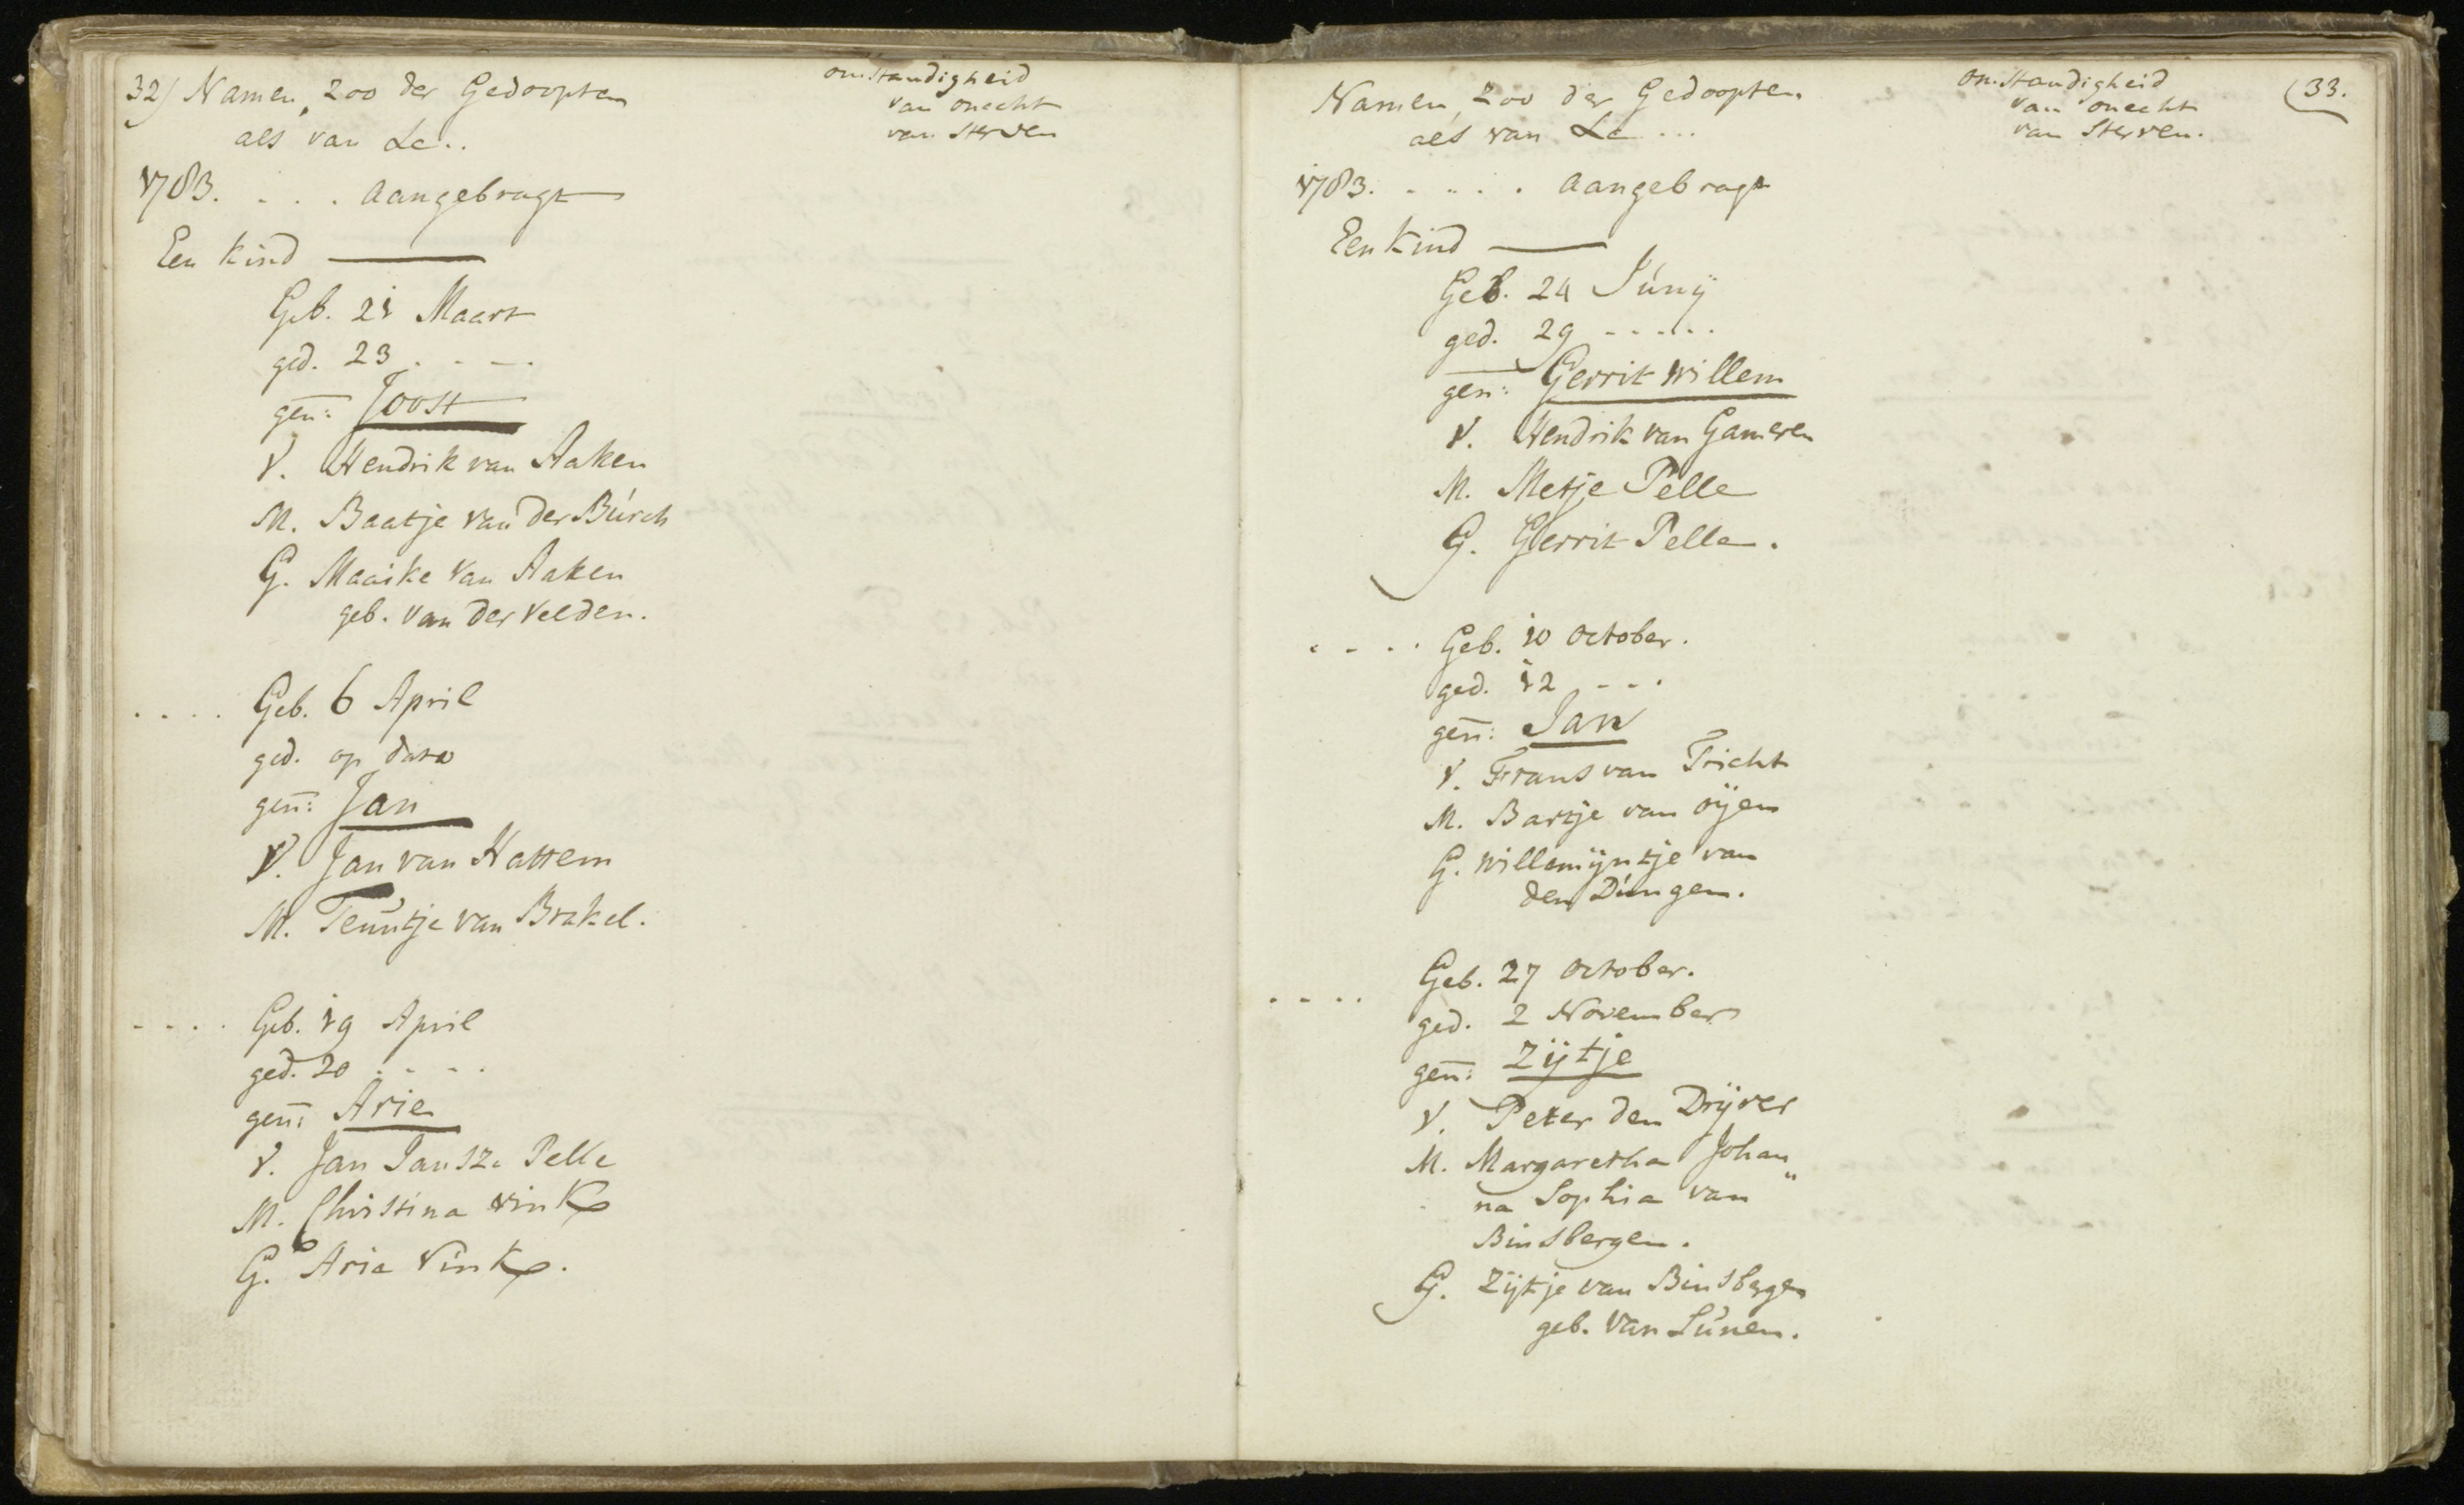 32) Namen, zoo der Gedoopten
als van &c..
omstandigheid
van onecht
van sterven
1783. . . . aangebragt
Een kind ———
Geb. 21 Maart
ged. 23 . - - .
gen: Joost
V. Hendrik van Aaken
M. Baatje van der Búrch
G. Maaike van Aaken
geb. van der Velden.
. . . . Geb. 6 April
ged. op dato
gen: Jan
V. Jan van Hattem
M. Teuntje van Brakel.
- - - . Geb. 19 April
ged. 20 . - - .
gen: Arie
V. Jan Jansz. Pelle
M. Christina Vink
G. Arie Vink.
Namen, zoo der Gedoopten
als van &c ...
omstandigheid
van onecht
van sterven.
(33.
1783. . . . . . aangebragt
Een kind ———
Geb. 24 Júnij
ged. 29 - - . . .
gen: Gerrit Willem
V. Hendrik van Gameren
M. Metje Pelle
G. Gerrit Pelle.
. - . . Geb. 10 October.
ged. 12 - - .
gen: Jan
V. Frans van Tricht
M. Bartje van Oijen
G. Willemijntje van
den Dúngen.
. - - . Geb. 27 October.
ged. 2 November
gen: Zijtje
V. Peter den Drijver
M. Margaretha Johan„
na Sophia van
Binsbergen.
G. Zijtje van Binsbergen
geb. van Súnen.